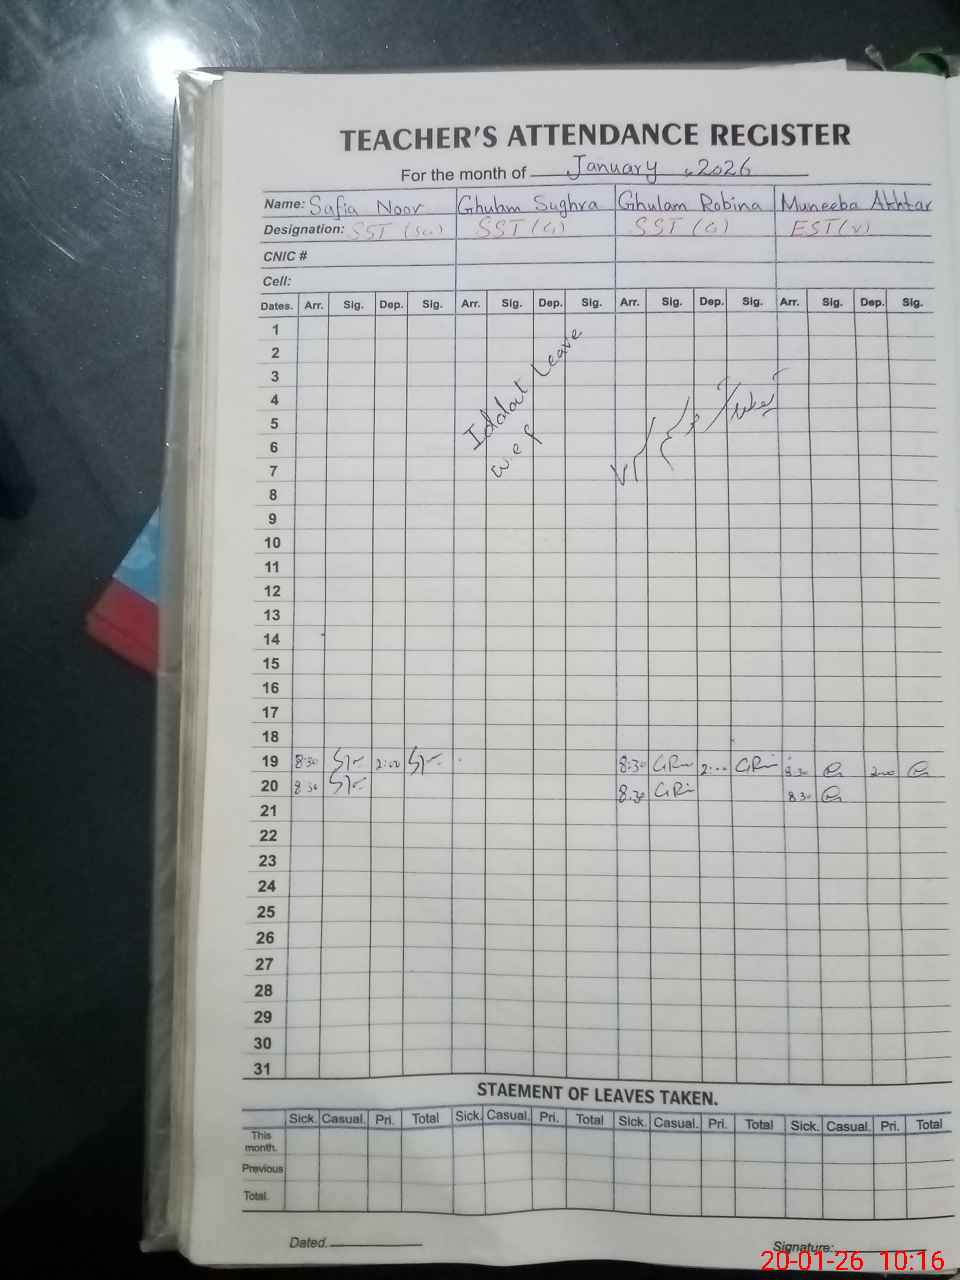 TEACHER'S ATTENDANCE REGISTER
For the month of January, 2026
Name: Safia Noor Ghulam Sughra Ghulam Robina Muneeba Akhtar
Designation: SST (Sc) SST (G) SST (G) EST (V)
CNIC #
Cell:
Dates. Arr. Sig. Dep. Sig. Arr. Sig. Dep. Sig. Arr. Sig. Dep. Sig. Arr. Sig. Dep. Sig.
1
2
3
4
5
6
7
Leave
w.e.f
8
9
10
11
12
13
14
15
16
17
18
19 8:30 2:00 8:30 GR 2: GR 8:30 2:00
20 8:30 8:30 GR 8:30
21
22
23
24
25
26
27
28
29
30
31
STAEMENT OF LEAVES TAKEN.
Sick. Casual. Pri. Total Sick. Casual. Pri. Total Sick. Casual. Pri. Total Sick. Casual. Pri. Total
This month.
Previous
Total.
Dated. Signature:
20-01-26 10:16